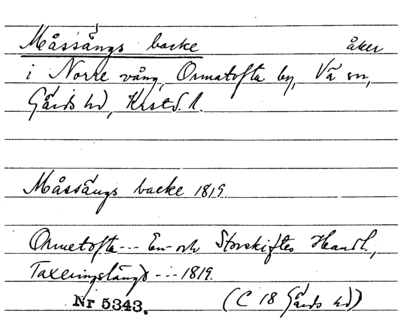 Måssångs backe åker
i Norre vång, Ormatofta by, Vä sn,
Gärds hd, Krstds l.
Måssångs backe 1819.
Ormetofta --- En- och Storskiftes Handl.,
Taxeringslängd --- 1819.
Nr 5343. (C 18 Gärds hd)